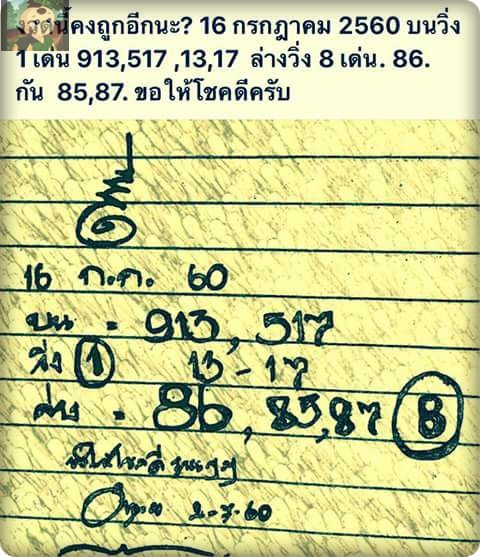 งวดนี้คงถูกอีกนะ? 16 กรกฎาคม 2560 บนวิ่ง
1 เด่น 913,517 ,13,17 ล่างวิ่ง 8 เด่น. 86.
กัน 85,87. ขอให้โชคดีครับ
16 ก.ค. 60
บน = 913, 517
วิ่ง 1 13 - 17
ล่าง = 86, 85,87 8
ขอให้โชคดี
2-7-60